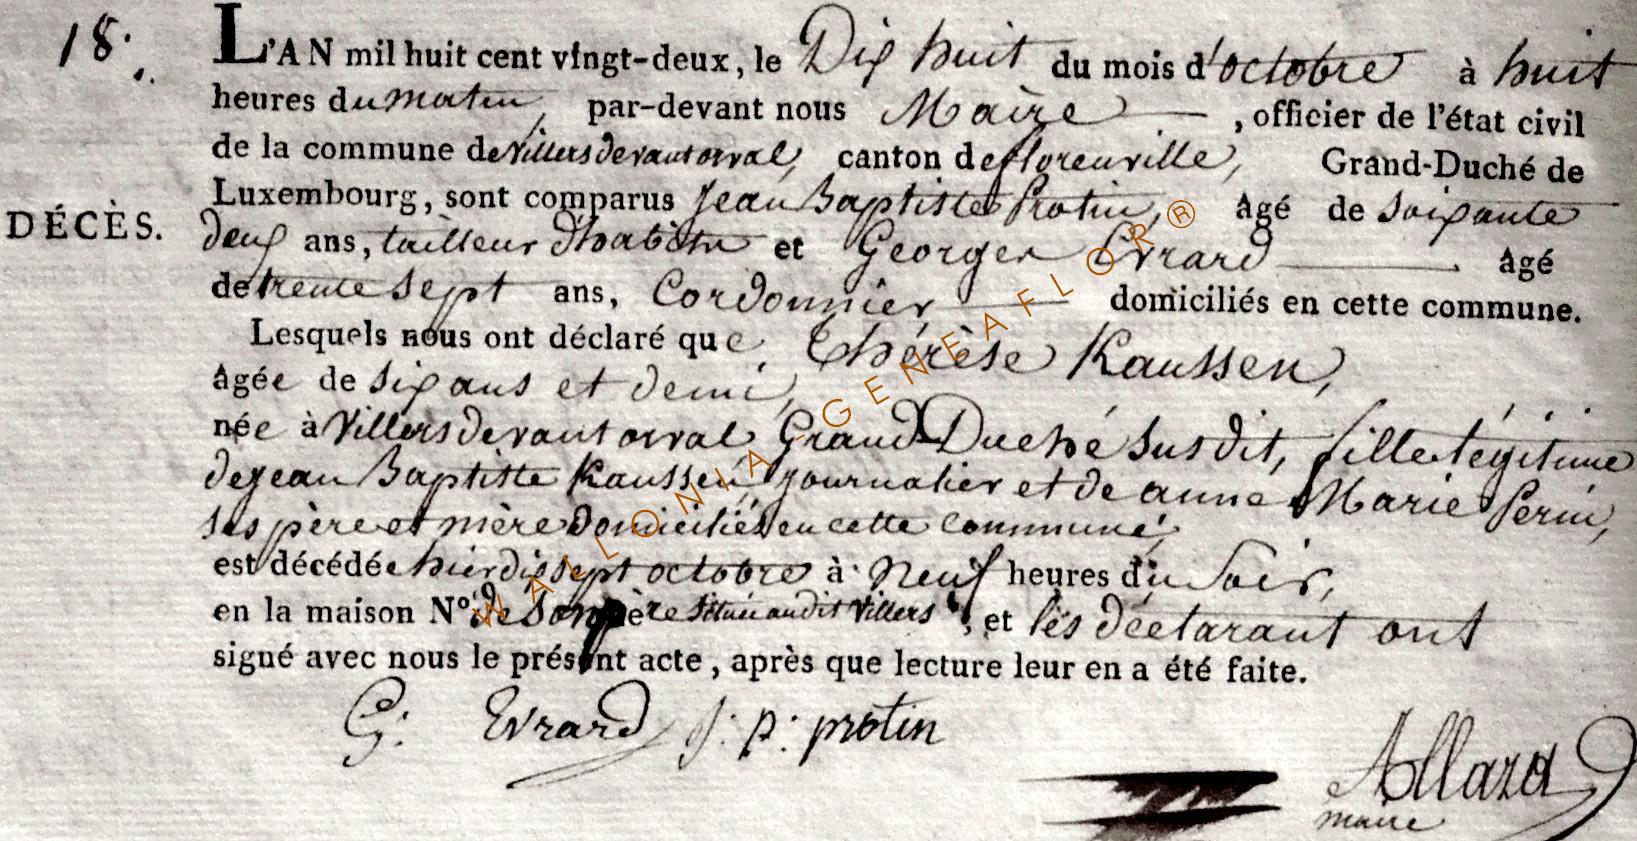 18.
L'AN mil huit cent vingt-deux, le Dix huit du mois d'octobre à huit
heures du matin, par-devant nous Maire , officier de l'état civil
de la commune de Villers devant orval, canton de florenville, Grand-Duché de
Luxembourg, sont comparus Jean Baptiste Protin, âgé de soixante
DÉCÈS.
deux ans, tailleur d'habits et Georges Evrard âgé
de trente sept ans, Cordonnier domiciliés en cette commune.
Lesquels nous ont déclaré que Thérèse Kaussen,
âgée de six ans et demi,
née à Villers devant orval Grand Duché susdit, fille légitime
de jean Baptiste Kaussen, journalier et de anne Marie Perin,
ses père et mère domiciliés en cette commune,
est décédée hier dix sept octobre à neuf heures du soir,
en la maison N.º de son père située audit Villers, et les déclarant ont
signé avec nous le présent acte, après que lecture leur en a été faite.
G. Evrard J: p: protin
Allard
maire
WALLONIA-GENEAFLOR®